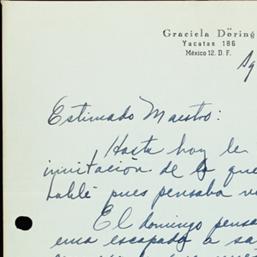 Graciela Döring
Yacatas 186
México 12. D. F.
Ag
Estimado Maestro:
Hasta hoy le
invitación de la que
hablé pues pensaba
El domingo pensa
una escapada a